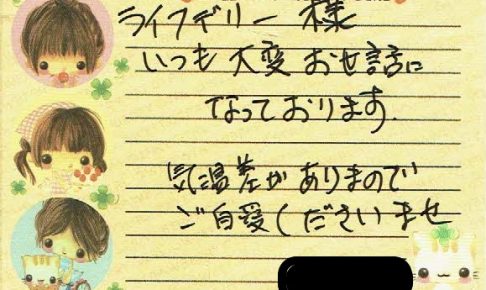 ライフデリー 様
いつも 大変 お世話に
なっております.
気温差が ありまので
ご自愛くださいませ